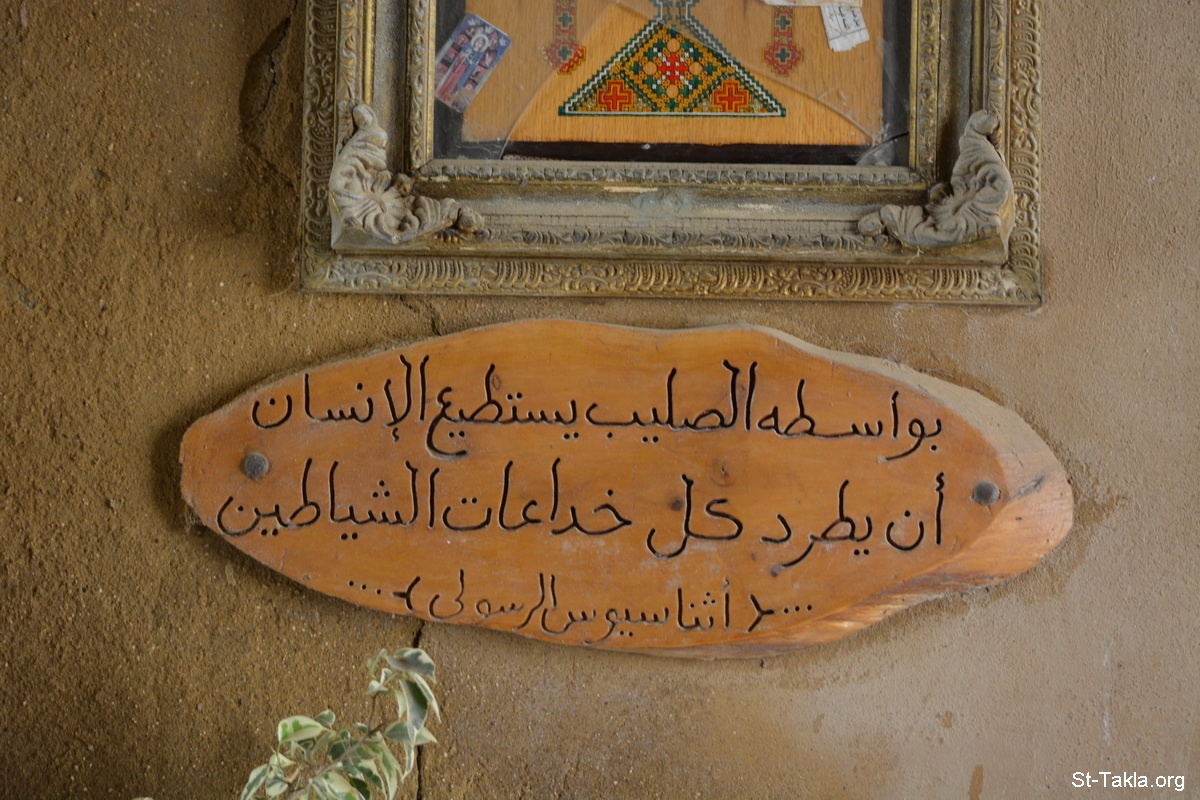 بواسطه الصليب يستطيع الإنسان
أن يطرد كل خداعات الشياطين
...{أثناسيوس الرسولى}...
St-Takla.org